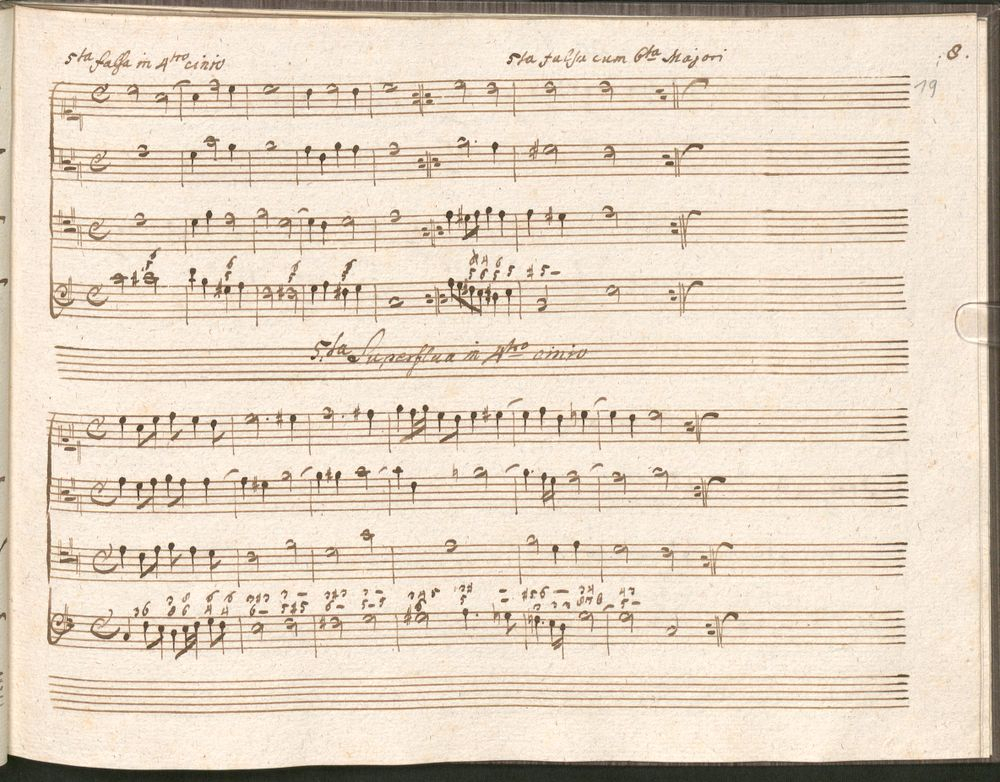 5ta falsa in 4tro cinio
5ta falsa cum 6ta Majori
8.
19
5.ta Superflua in 4tro cinio